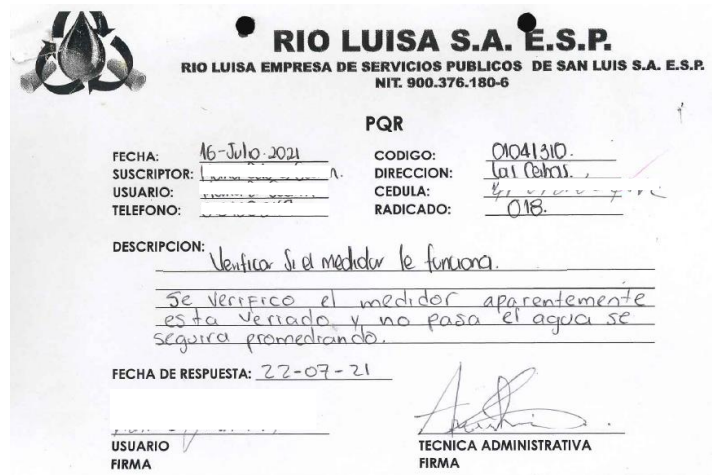 RIO LUISA S.A. E.S.P.
RIO LUISA EMPRESA DE SERVICIOS PUBLICOS DE SAN LUIS S.A. E.S.P.
NIT. 900.376.180-6
PQR
FECHA: 16-Julio-2021 CODIGO: 01041310.
SUSCRIPTOR: DIRECCION: Las Ceibas.
USUARIO: CEDULA:
TELEFONO: RADICADO: 018.
DESCRIPCION:
Verificar si el medidor le funciona.
Se verifico el medidor aparentemente
esta veriado y no pasa el agua se
seguira promediando.
FECHA DE RESPUESTA: 22-07-21
USUARIO TECNICA ADMINISTRATIVA
FIRMA FIRMA